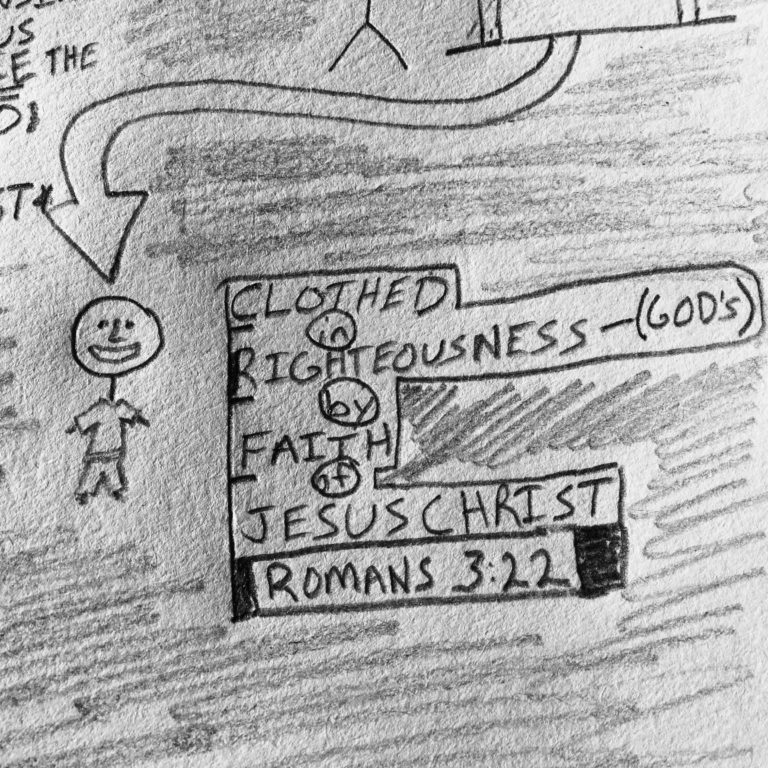 US
THE
CLOTHED
in
RIGHTEOUSNESS—(GOD's)
by
FAITH
of
JESUS CHRIST
ROMANS 3:22